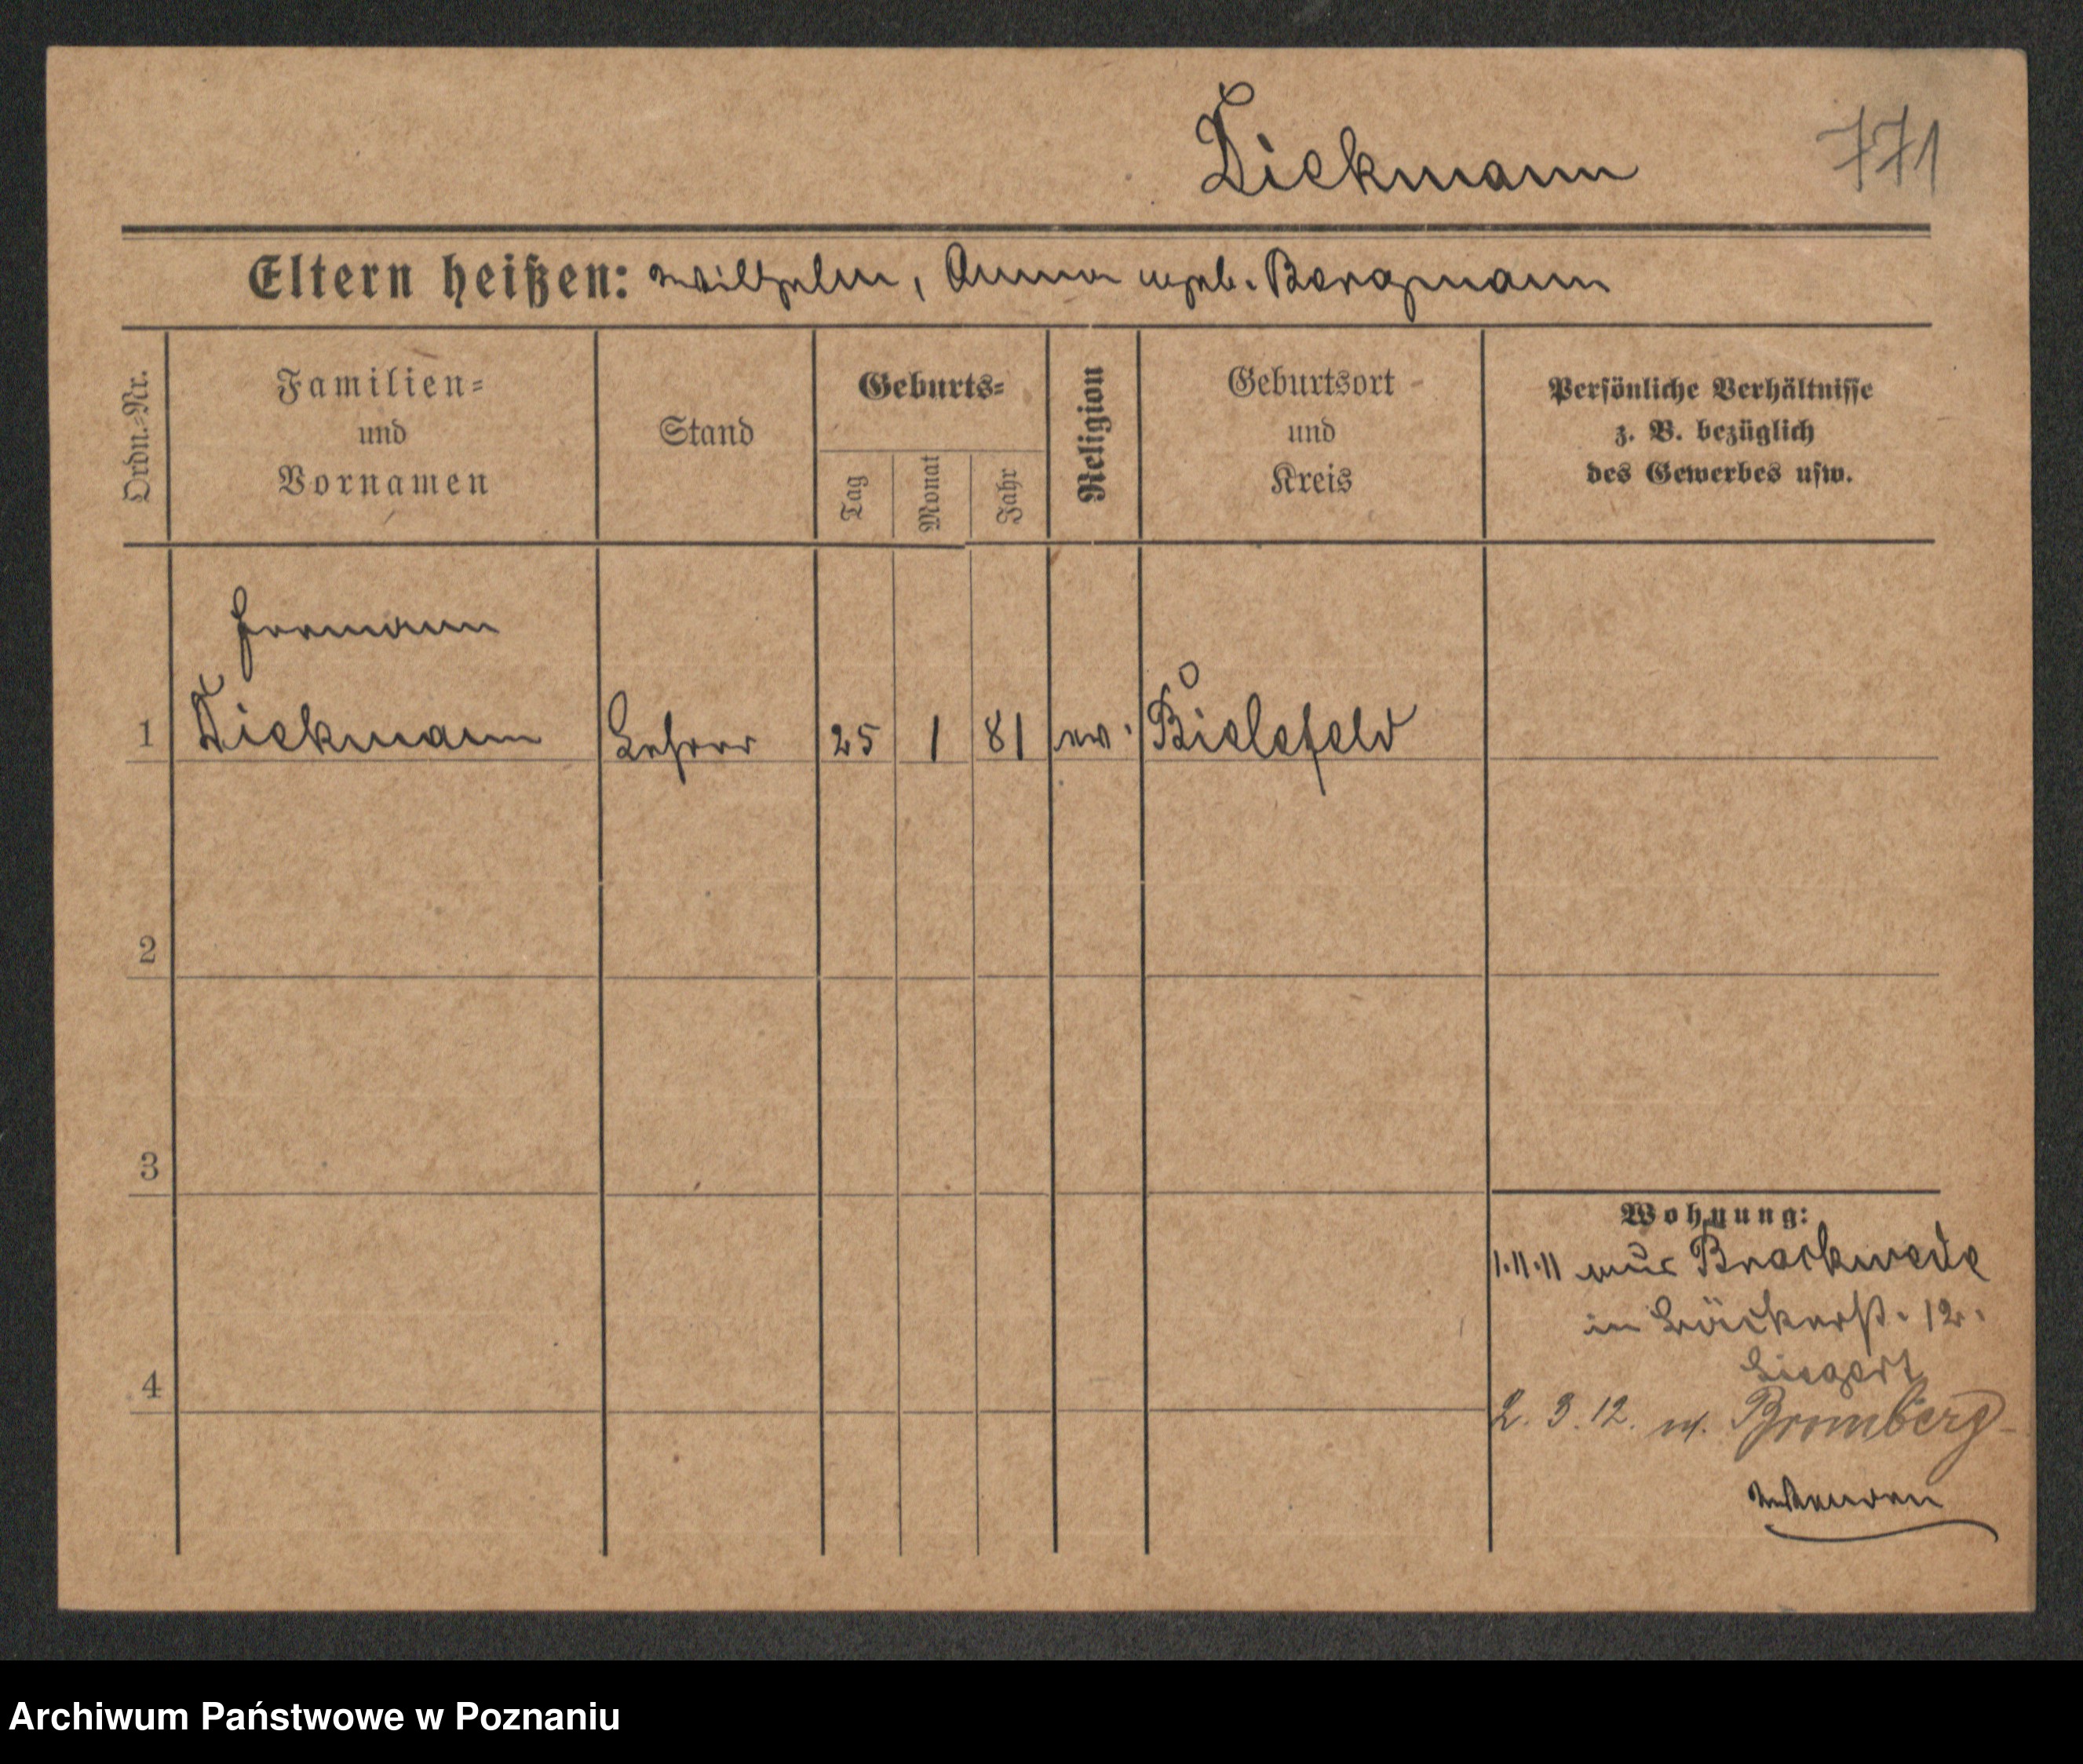 Diekmann
771
Eltern heißen: Wilhelm, Anna geb. Bergmann
Ordn.-Nr.
Familien-
und
Vornamen
Stand
Geburts-
Tag
Monat
Jahr
Religion
Geburtsort
und
Kreis
Persönliche Verhältnisse
z. B. bezüglich
des Gewerbes usw.
Hermann
1 Diekmann Lehrer 25 1 81 ev. Bielefeld
2
3
4
Wohnung:
1.11.11 aus Brackwede
in Bäckerst. 12.
2. 3. 12. n. Bromberg